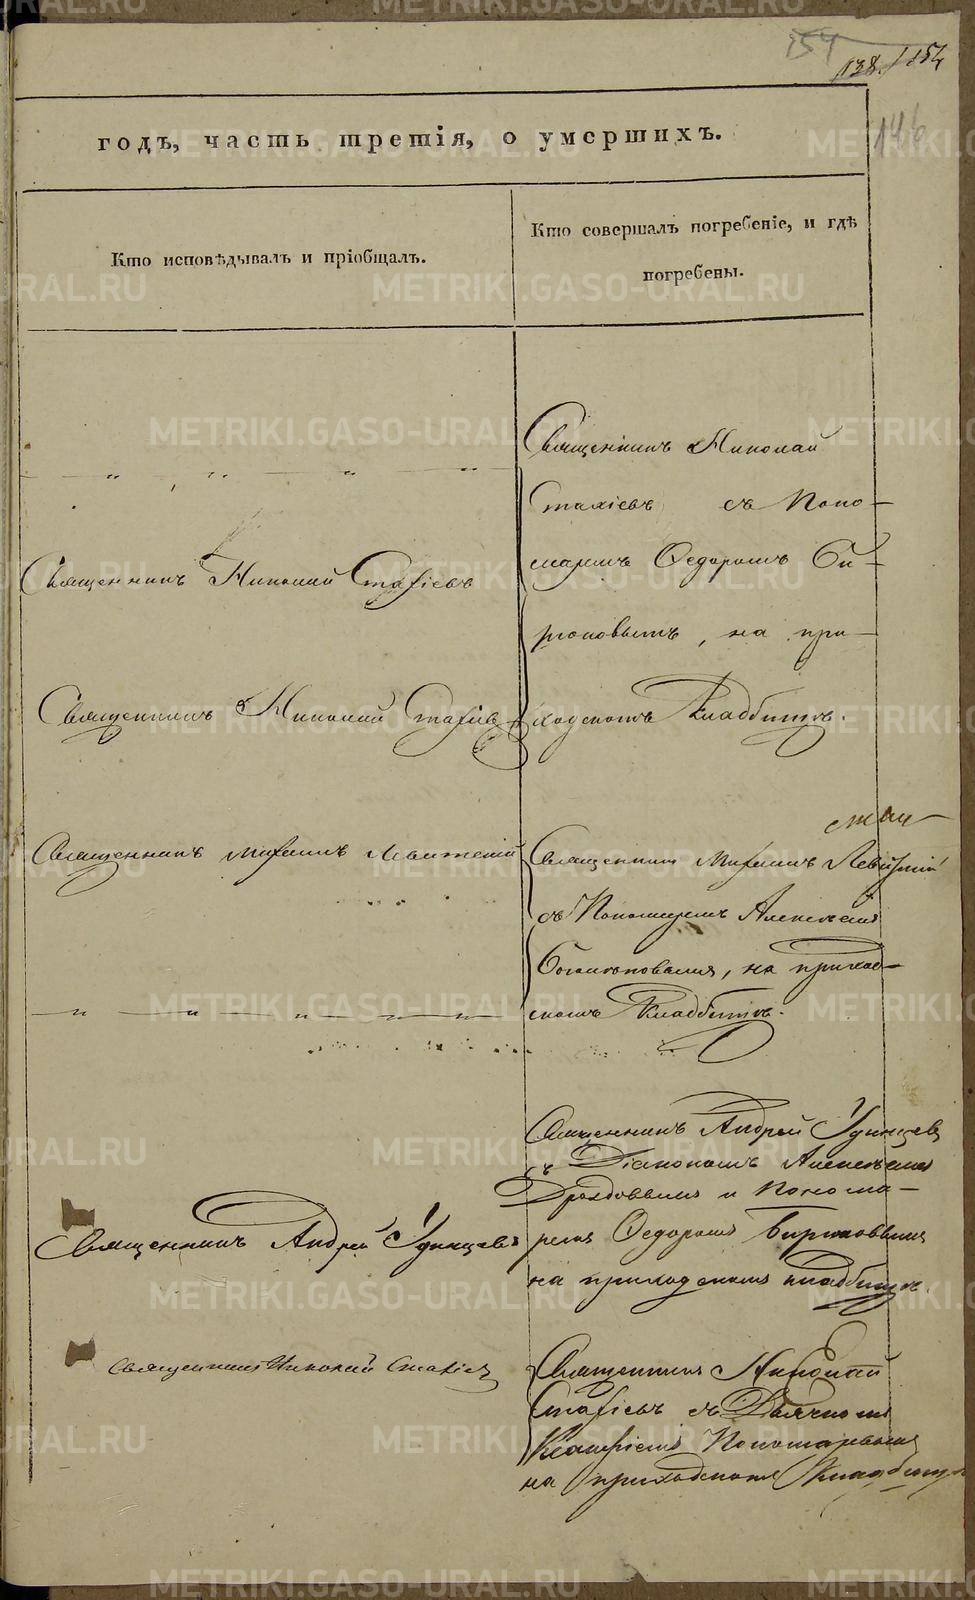 154
138. / 154
146
годъ, часть третія, о умершихъ.
Кто исповѣдывалъ и пріобщалъ.
Кто совершалъ погребеніе, и гдѣ
погребены.
Священникъ Николай
Стахіевъ съ Поно-
маремъ Ѳедоромъ Би-
рюковымъ, на при-
ходскомъ Кладбищѣ.
Священникъ Николай Стахіевъ
Священникъ Николай Стахіевъ
Священникъ Михаилъ Левитскій
Священникъ Михаилъ Левитскій
съ Пономаремъ Алексѣемъ
на приход-
скомъ Кладбищѣ.
Священникъ Андрей Удинцевъ
съ Діакономъ Алексѣемъ
Дроздовымъ и Понома-
ремъ Ѳедоромъ Бирюковымъ
на приходскомъ кладбищѣ.
Священникъ Андрей Удинцевъ
Священникъ Николай Стахіевъ
Священникъ Николай
Стахіевъ съ Дьячкомъ
Пономаревымъ
на приходскомъ Кладбищѣ
METRIKI.GASO-URAL.RU